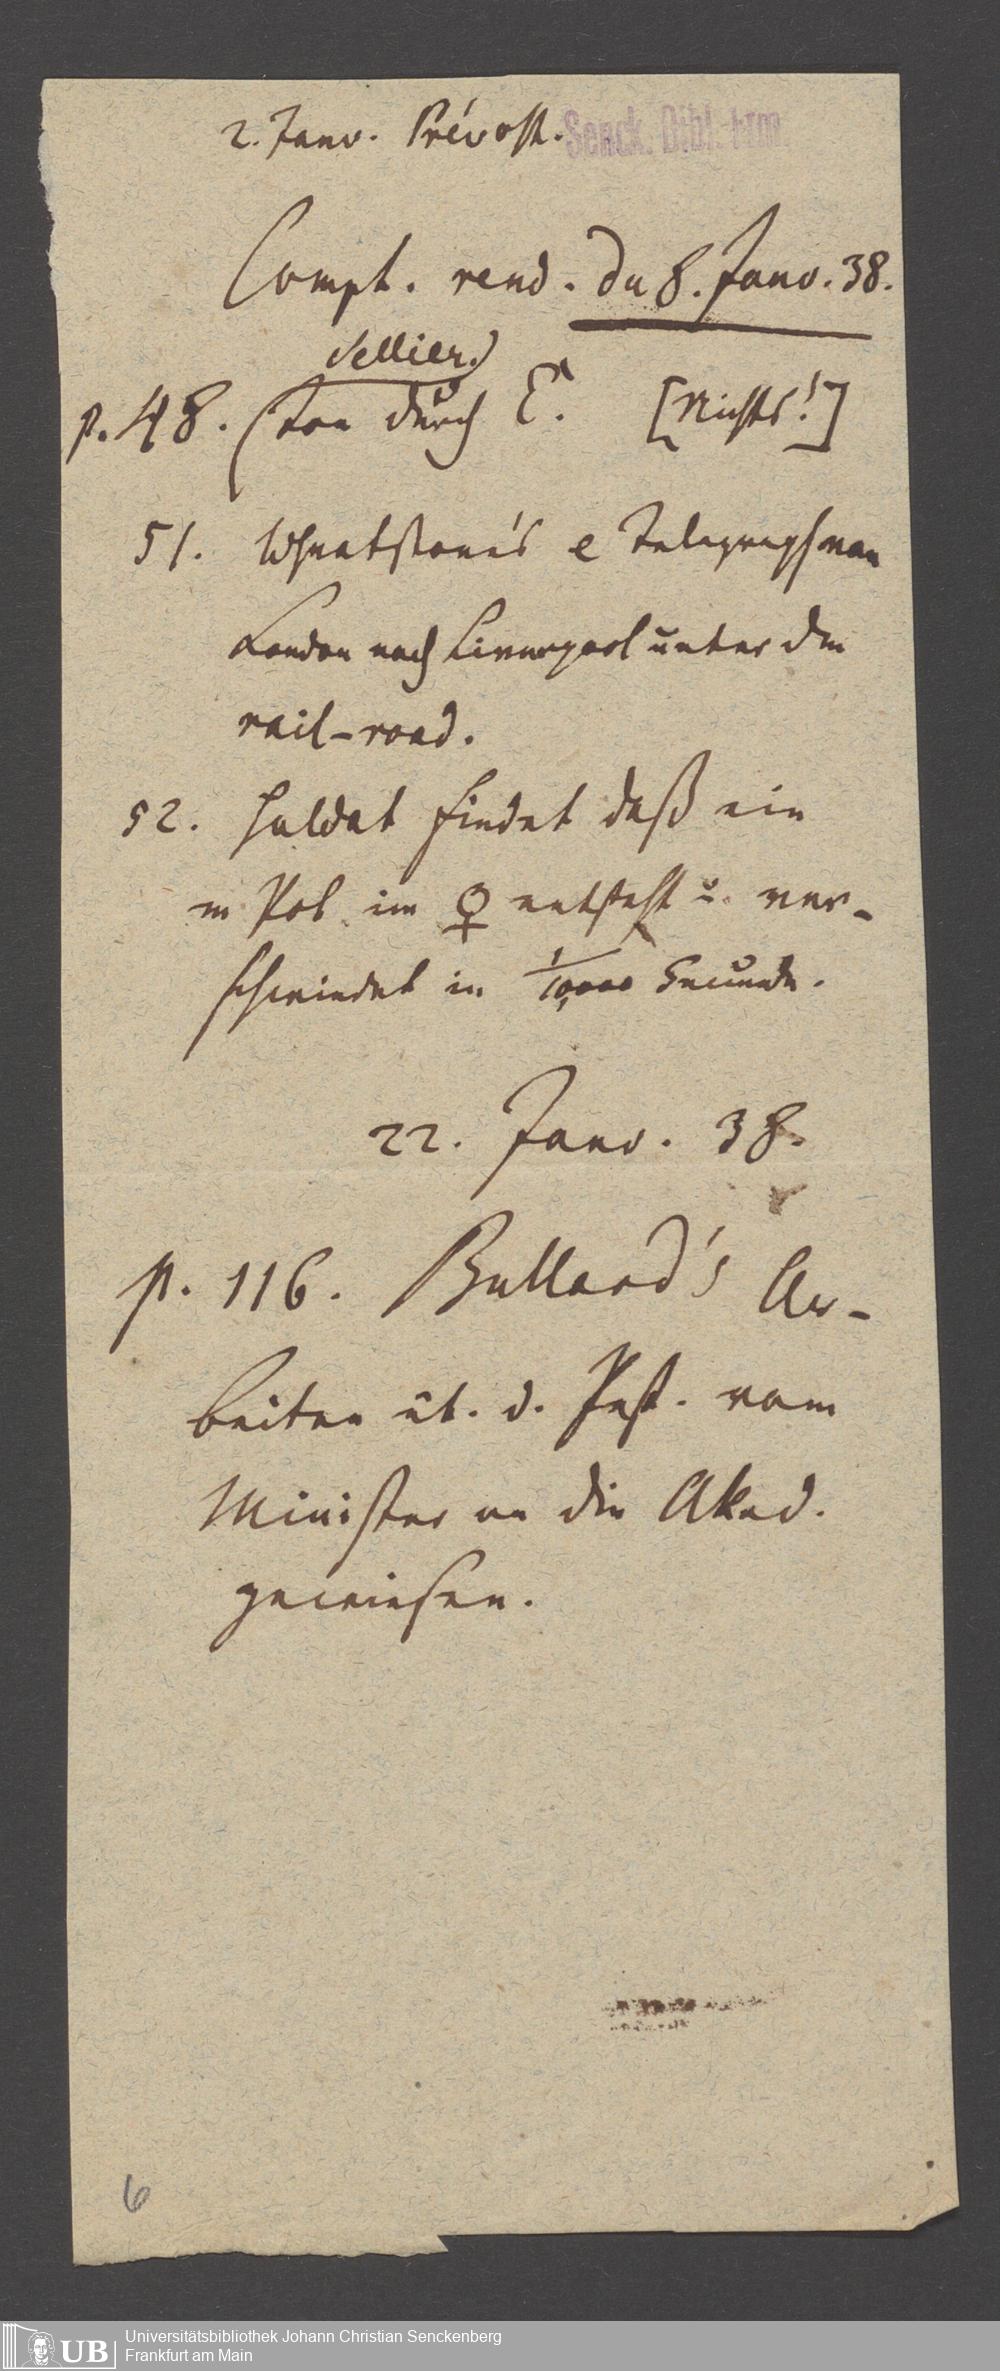 2. Janv. Prévost.
Senck. Bibl. Ffm.
Compt. rend. du 8. Janv. 38.
Sellier.)
p. 48. (Ton durch E. [Nichts!]
51. Wheatstone's e Telegraph von
London nach Liverpool unter dem
rail-road.
52. Haldat findet daß ein
m Pol im ♀ entsteht u. ver-
schwindet in 1/10,000 Secunde.
22. Janv. 38.
p. 116. Bullard's Ar-
beiten üb. d. Pest. vom
Minister an die Akad.
gewiesen.
6
UB
Universitätsbibliothek Johann Christian Senckenberg
Frankfurt am Main